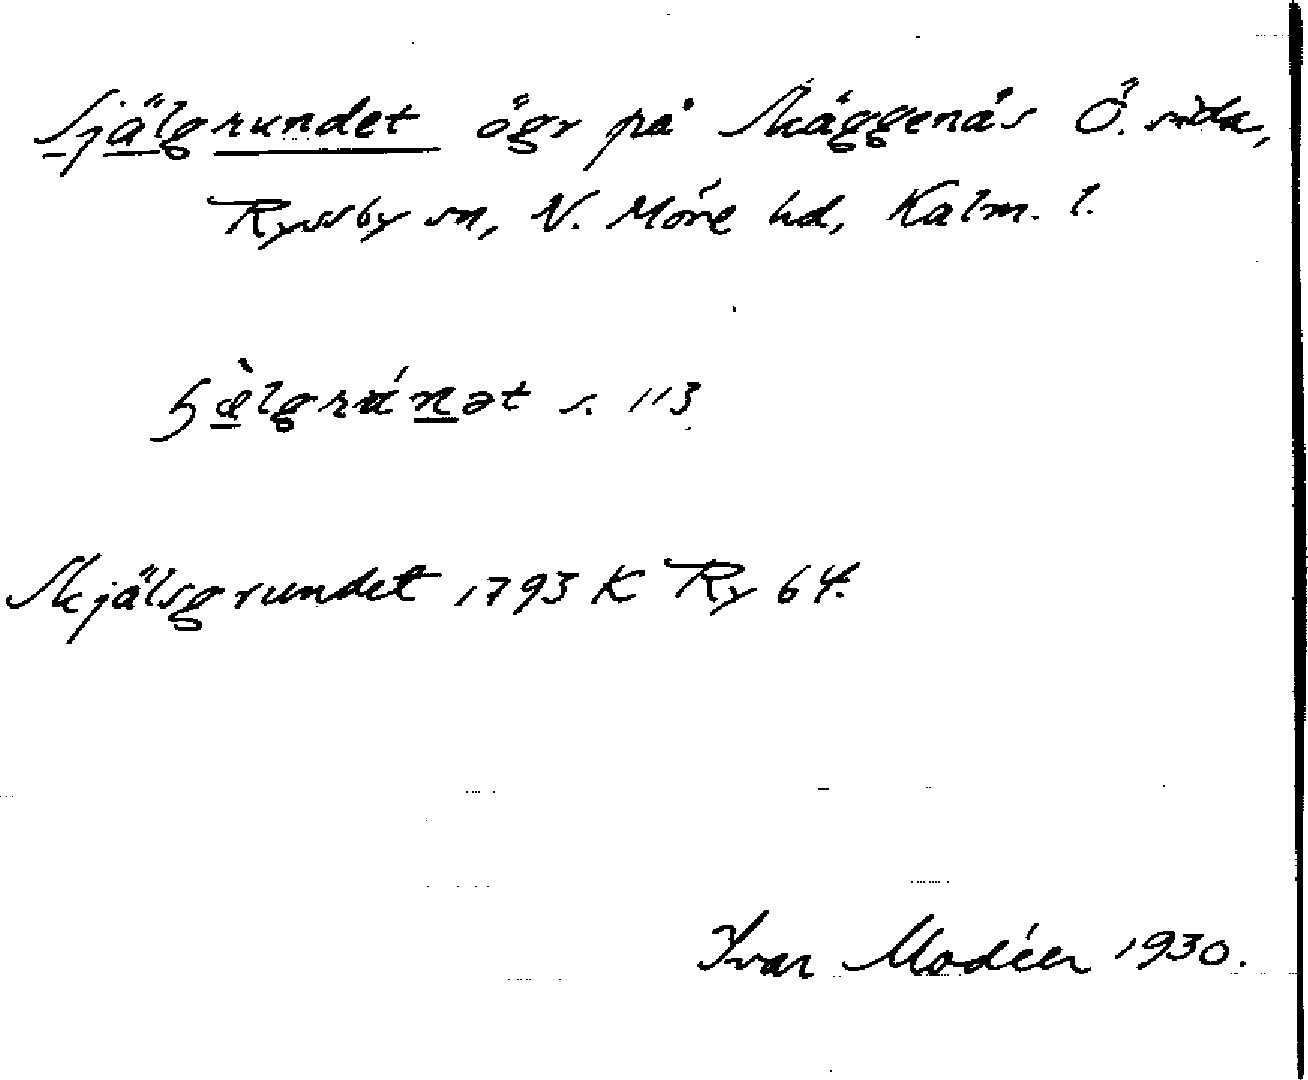 Själgrundet ögr på Skäggenäs Ö. sida,
Ryssby sn, N. Möre hd, Kalm. l.
ɧæ̀lgrúnət s. 113
Skjälsgrundet 1793 K Ry 64.
Ivar Modéer 1930.